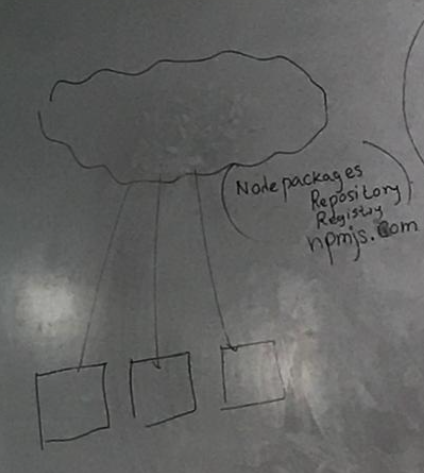 Node packages
Repository
Registry
npmjs.com